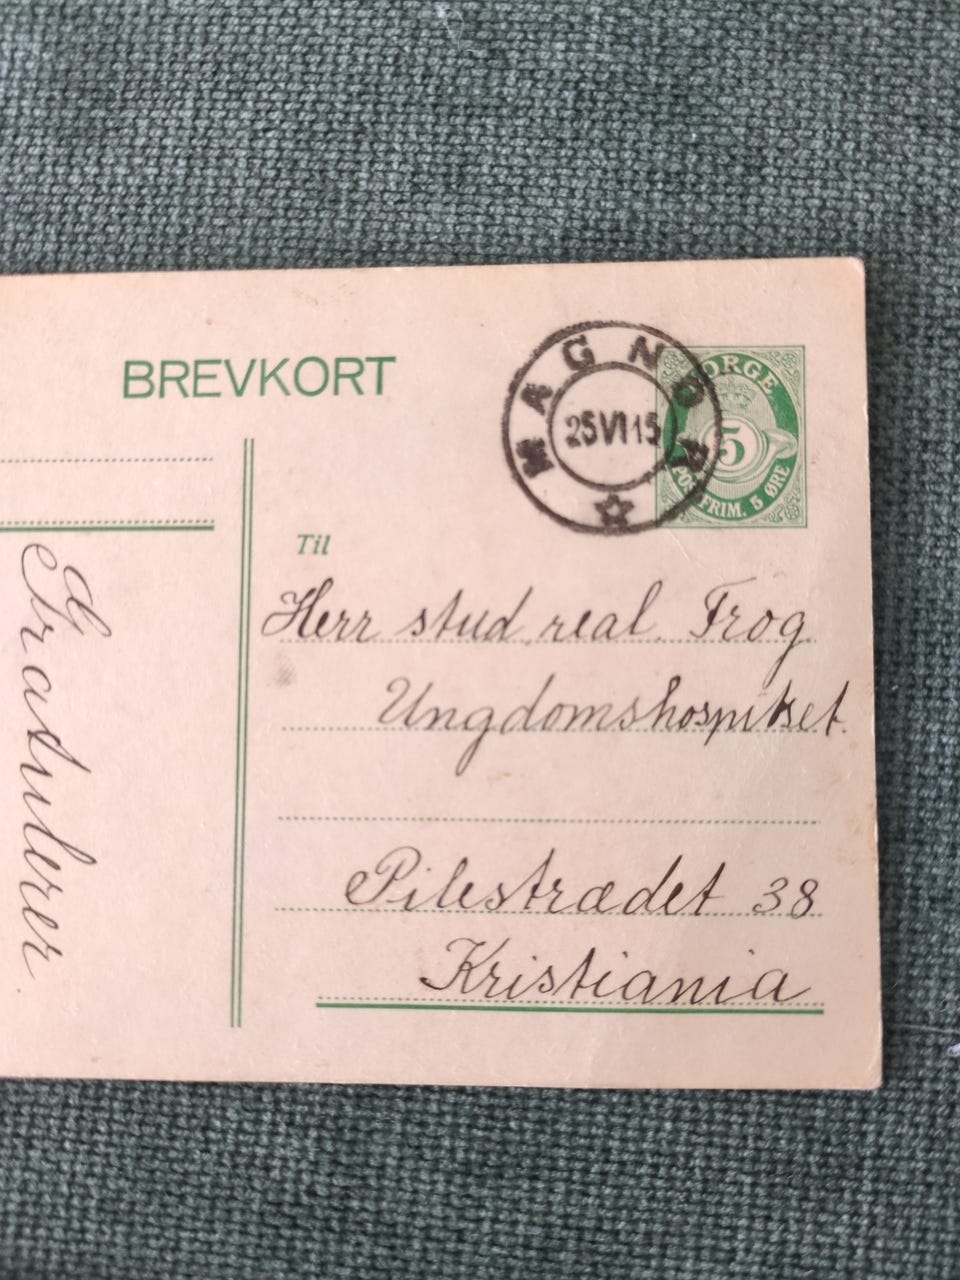 BREVKORT
MAGNOR
25 VI 15
NORGE
5
POSTFRIM. 5 ØRE
Til
Herr stud. real. Frog
Ungdomshospitset.
Pilestrædet 38
Kristiania
Gratulerer